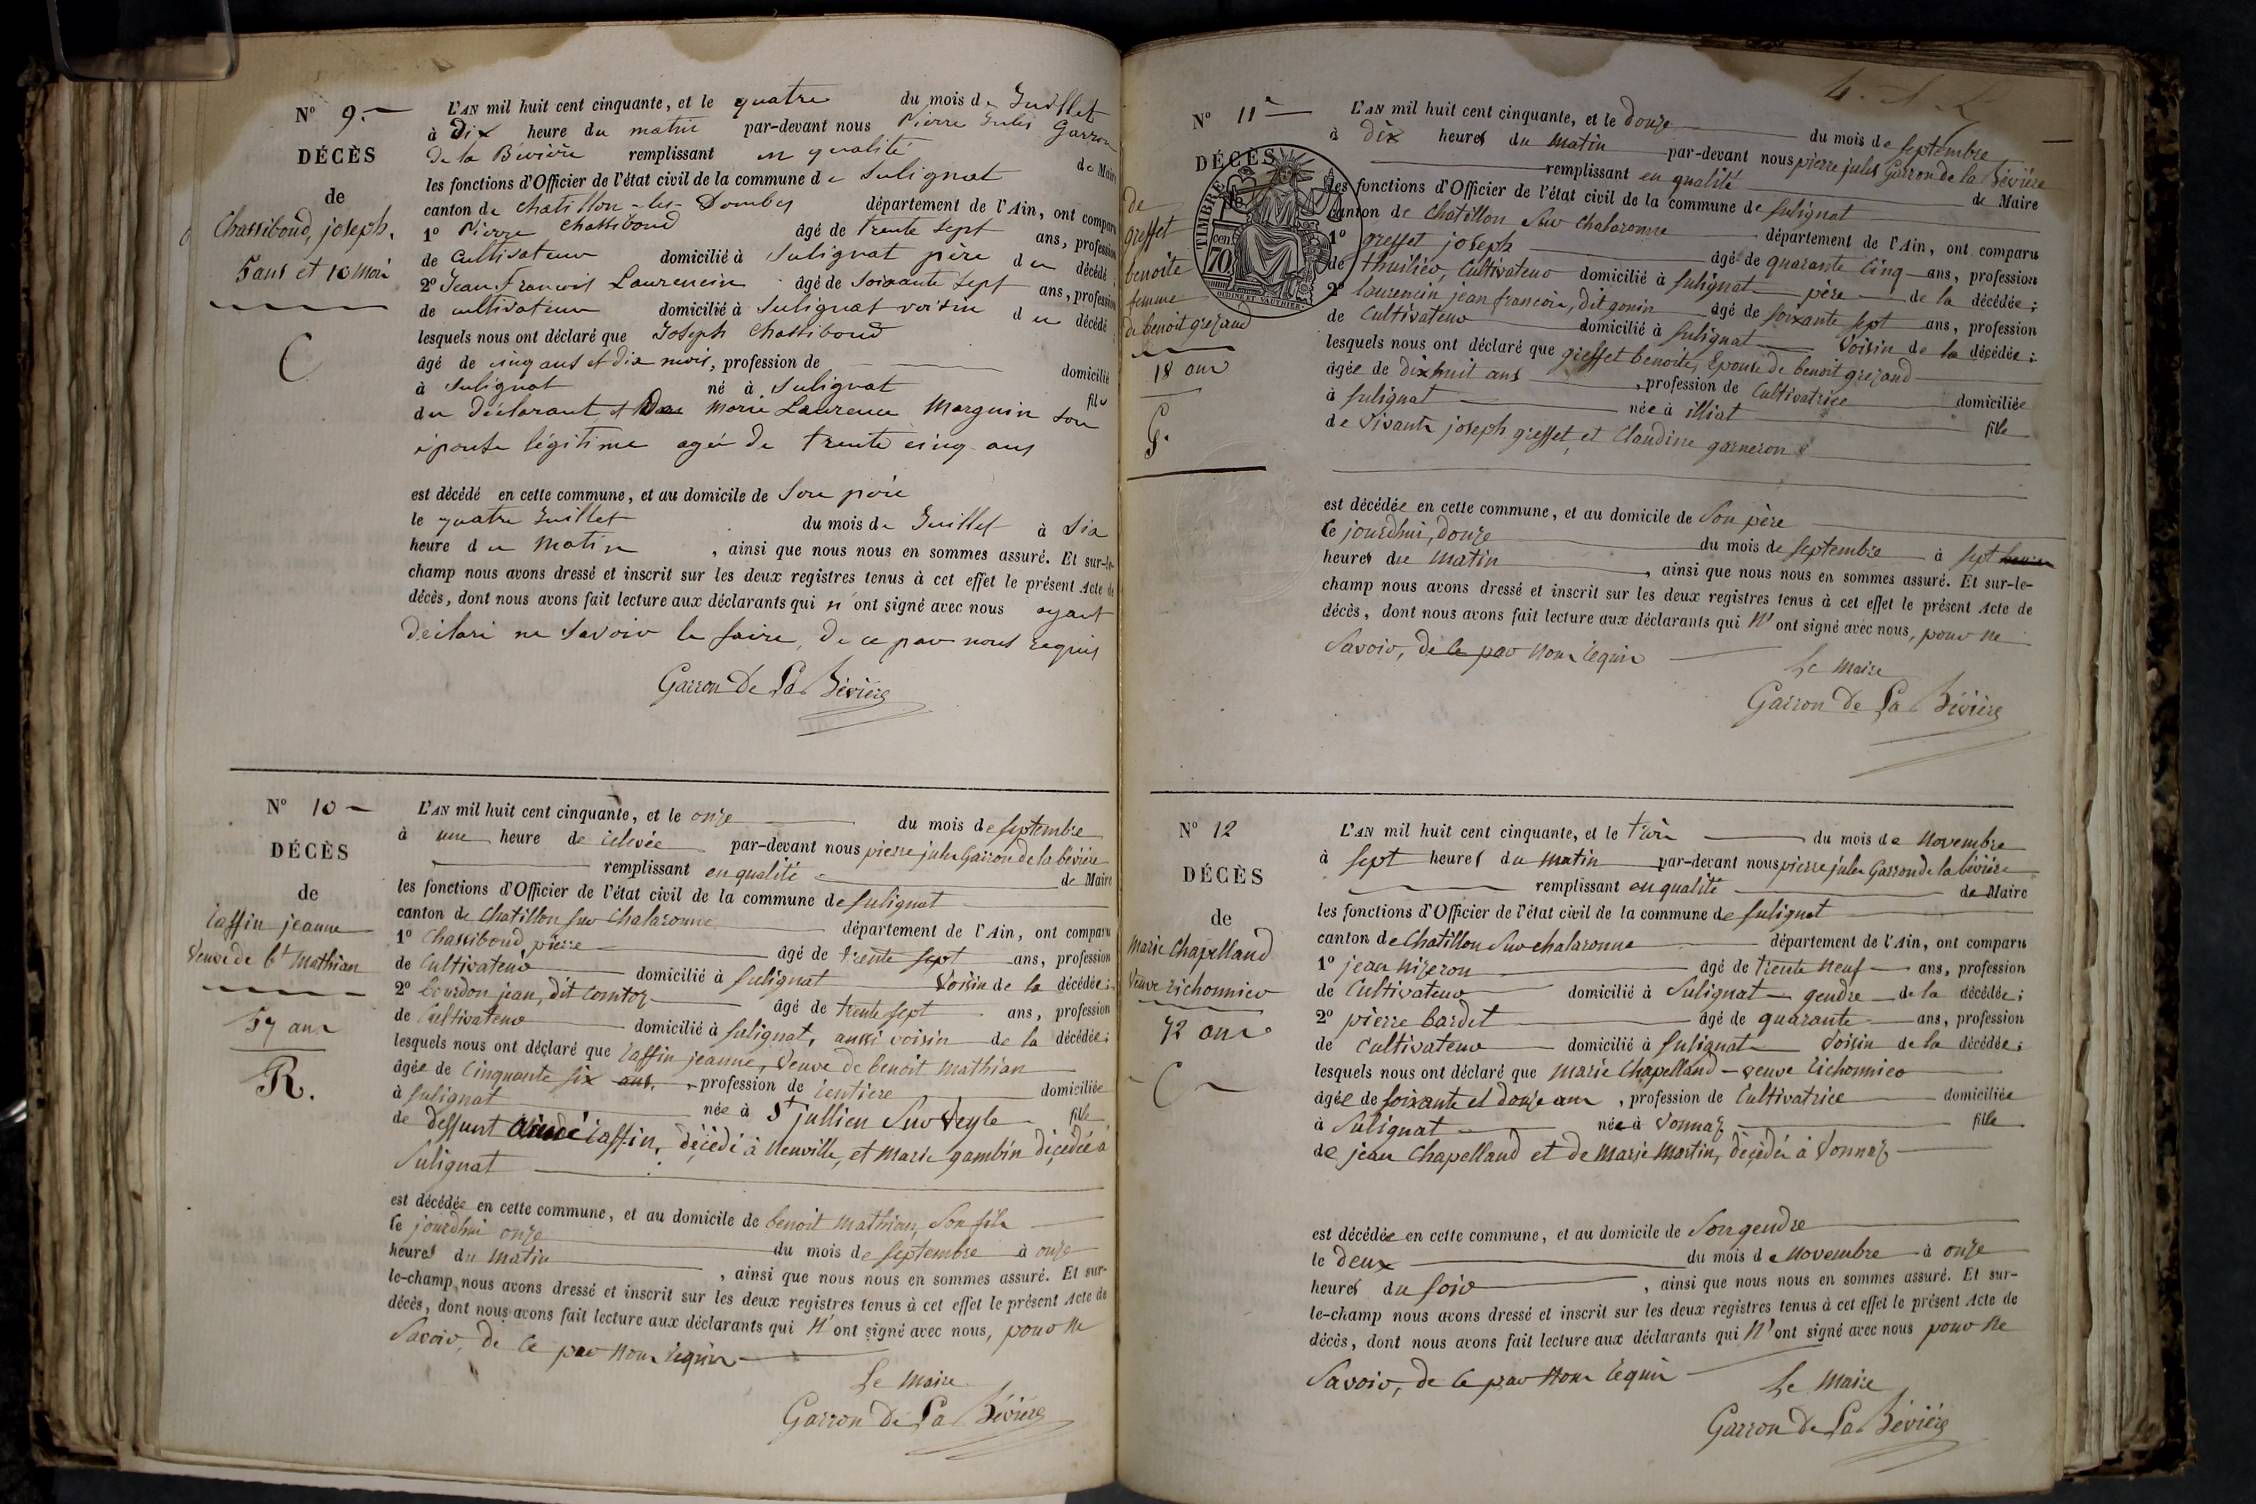 N° 9.
DÉCÈS
de
Chassiboud, joseph.
5 ans et 10 moi
C
L'AN mil huit cent cinquante, et le quatre du mois de Juillet
à Dix heure du matin par-devant nous Pierre Jules Garron
De la Bévière remplissant en qualité de Maire
les fonctions d'Officier de l'état civil de la commune de Sulignat
canton de Chatillon-les-Dombes département de l'Ain, ont comparu
1° Pierre Chassiboud âgé de trente Sept ans, profession
de Cultivateur domicilié à Sulignat père du décédé
2° Jean Francois Laurencin âgé de Soixante Sept ans, profession
de cultivateur domicilié à Sulignat voisin du décédé
lesquels nous ont déclaré que Joseph Chassiboud
âgé de cinq ans et dix mois, profession de domicilié
à Sulignat né à Sulignat fils
du déclarant et De Marie Laurence Marguin Son
épouse légitime agée de trente cinq ans
est décédé en cette commune, et au domicile de Son père
le quatre Juillet du mois de Juillet à Six
heure du Matin, ainsi que nous nous en sommes assuré. Et sur-le-
champ nous avons dressé et inscrit sur les deux registres tenus à cet effet le présent Acte de
décès, dont nous avons fait lecture aux déclarants qui n'ont signé avec nous ayant
Déclaré ne Savoir le faire, De ce par nous requis
Garron De La Bévière
N° 10
DÉCÈS
de
Raffin jeanne
Veuve de bt Mathian
57 ans
R.
L'AN mil huit cent cinquante, et le onze du mois de septembre
à une heure de relevée par-devant nous pierre jules Garron de la bévière
remplissant en qualité de Maire
les fonctions d'Officier de l'état civil de la commune de Sulignat
canton de Chatillon sur Chalaronne département de l'Ain, ont comparu
1° Chassiboud pierre âgé de trente sept ans, profession
de Cultivateur domicilié à Sulignat Voisin de la décédée;
2° bourdon jean, dit Comtoz âgé de trente sept ans, profession
de Cultivateur domicilié à Sulignat, aussi voisin de la décédée;
lesquels nous ont déclaré que Raffin jeanne, Veuve de benoit Mathian
âgée de Cinquante six ans, profession de rentiere domiciliée
à Sulignat née à St jullien Sur Veyle fille
de deffunt aimé raffin, décédé à Neuville, et Marie gambin décédée à
Sulignat
est décédée en cette commune, et au domicile de benoit Mathian, Son fils
le jourdhui onze du mois de septembre à onze
heures du Matin, ainsi que nous nous en sommes assuré. Et sur-
le-champ nous avons dressé et inscrit sur les deux registres tenus à cet effet le présent Acte de
décès, dont nous avons fait lecture aux déclarants qui N'ont signé avec nous, pour ne
Savoir, de ce par Nous requis
Le Maire
Garron De La Bévière
N° 11
DÉCÈS
TIMBRE
70 cen
OUDINE ET VAUTHIER
de
greffet
benoite
femme
de benoit grezaud
18 ans
G.
L'AN mil huit cent cinquante, et le douze du mois de septembre
à dix heures du Matin par-devant nous pierre jules Garron de la Bévière
remplissant en qualité de Maire
les fonctions d'Officier de l'état civil de la commune de Sulignat
canton de Chatillon Sur Chalaronne département de l'Ain, ont comparu
1° greffet joseph âgé de quarante Cinq ans, profession
de thuilier, Cultivateur domicilié à Sulignat père de la décédée;
2° laurencin jean francois, dit gonin âgé de soixante sept ans, profession
de Cultivateur domicilié à Sulignat Voisin de la décédée;
lesquels nous ont déclaré que greffet benoite, Epouse de benoit grezaud
âgée de dixhuit ans, profession de Cultivatrice domiciliée
à Sulignat née à illiat fille
de Vivants joseph greffet, et Claudine garneron
est décédée en cette commune, et au domicile de Son père
le jourdhui, douze du mois de septembre à sept heures
heures du Matin, ainsi que nous nous en sommes assuré. Et sur-le-
champ nous avons dressé et inscrit sur les deux registres tenus à cet effet le présent Acte de
décès, dont nous avons fait lecture aux déclarants qui N'ont signé avec nous, pour ne
Savoir, de ce par Nous requis
Le Maire
Garron De La Bévière
N° 12
DÉCÈS
de
Marie Chapelland
Veuve richonnier
72 ans
C
L'AN mil huit cent cinquante, et le trois du mois de Novembre
à sept heures du Matin par-devant nous pierre jules Garron de la bévière
remplissant en qualité de Maire
les fonctions d'Officier de l'état civil de la commune de Sulignat
canton de Chatillon Sur chalaronne département de l'Ain, ont comparu
1° jean Nizeron âgé de trente Neuf ans, profession
de Cultivateur domicilié à Sulignat gendre de la décédée;
2° pierre bardet âgé de quarante ans, profession
de Cultivateur domicilié à Sulignat Voisin de la décédée;
lesquels nous ont déclaré que Marie Chapelland veuve richonnier
âgée de soixante et douze ans, profession de Cultivatrice domiciliée
à Sulignat née à Vonnaz fille
de jean Chapelland et de Marie Martin, décédés à Vonnaz
est décédée en cette commune, et au domicile de Son gendre
le deux du mois de Novembre à onze
heures du Soir, ainsi que nous nous en sommes assuré. Et sur-
le-champ nous avons dressé et inscrit sur les deux registres tenus à cet effet le présent Acte de
décès, dont nous avons fait lecture aux déclarants qui N'ont signé avec nous pour ne
Savoir, de ce par Nous requis
Le Maire
Garron De La Bévière